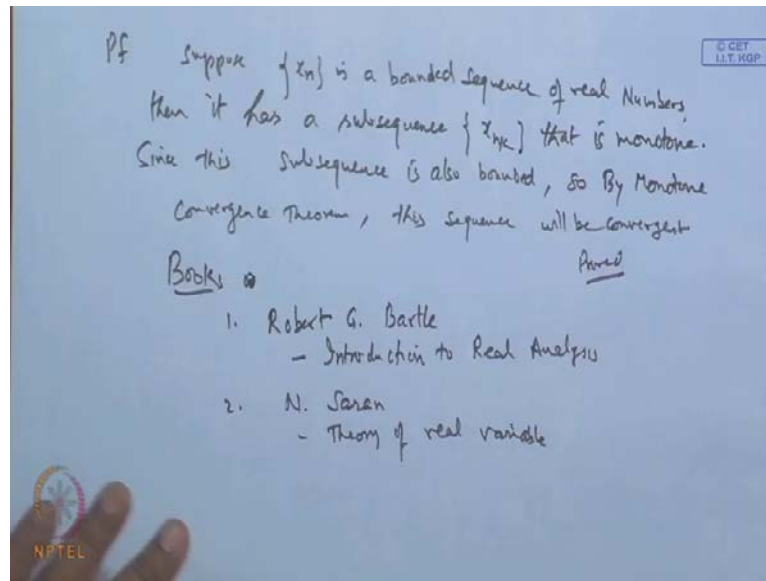 Pf Suppose {xn} is a bounded sequence of real Numbers,
© CET
I.I.T. KGP
then it has a subsequence {xnk} that is monotone.
Since this subsequence is also bounded, so By Monotone
Convergence Theorem, this sequence will be convergent
Proved
Books
1. Robert G. Bartle
- Introduction to Real Analysis
2. N. Saran
- Theory of real variable
NPTEL